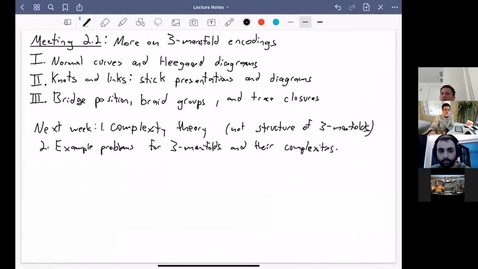 Lecture Notes
Meeting 2.2: More on 3-manifold encodings
I. Normal curves and Heegaard diagrams
II. Knots and links: stick presentations and diagrams
III. Bridge position, braid groups, and trace closures
Next week: 1. Complexity theory (not structure of 3-manifolds)
2. Example problems for 3-manifolds and their complexities.